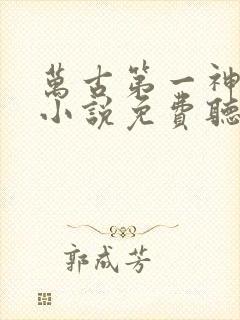 萬古第一神
小說免費聽
郭成芳